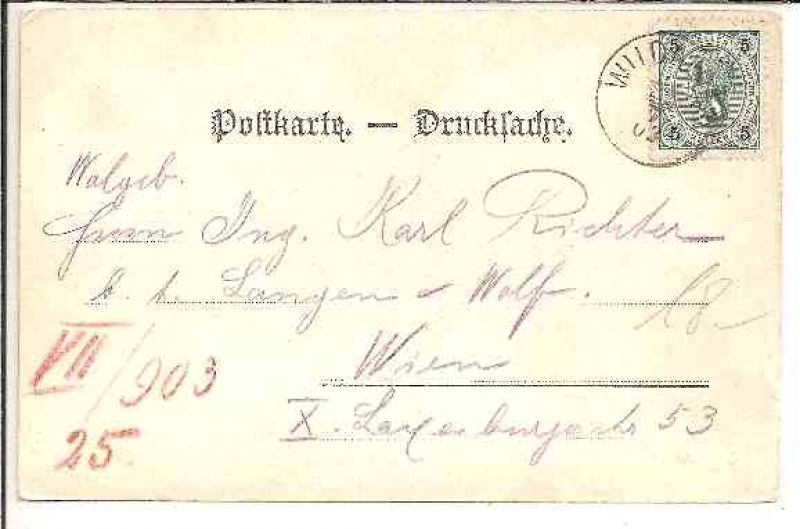 Postkarte. — Drucksache.
Wolgeb.
Herrn Ing. Karl Richter
Langen & Wolf.
18
Wien
X. Laxenburgerstr 53
VII/903
25.
WILD
03
5 5
5 5